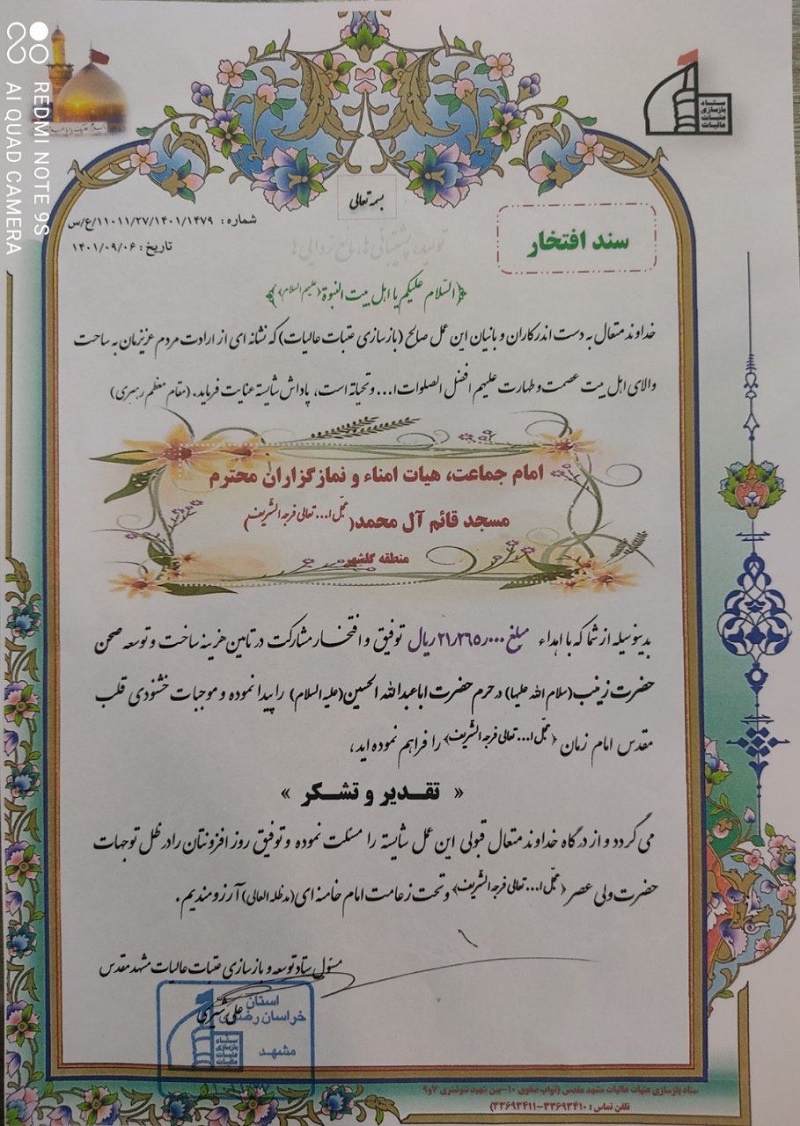 ستاد
بازسازی
عتبات
عالیات
بسمه تعالی
شماره : ۱۱۰۱۱/۲۷/۱۴۰۱/۱۴۷۹/ع/س
تاریخ : ۱۴۰۱/۰۹/۰۶
تولید، پشتیبانی ها، مانع زدایی ها
سند افتخار
﴿السّلام علیکم یا اهل بیت النبوة (علیهم السلام)﴾
خداوند متعال به دست اندرکاران و بانیان این عمل صالح (بازسازی عتبات عالیات) که نشانه ای از ارادت مردم عزیزمان به ساحت
والای اهل بیت عصمت و طهارت علیهم افضل الصلوات ا... و تحیاته است، پاداش شایسته عنایت فرماید. (مقام معظم رهبری)
امام جماعت، هیات امناء و نمازگزاران محترم
مسجد قائم آل محمد(عجّل ا... تعالی فرجه الشریف)
منطقه گلشهر
بدینوسیله از شما که با اهداء مبلغ ۲۱٫۲۶۵٫۰۰۰ ریال توفیق و افتخار مشارکت در تامین هزینه ساخت و توسعه صحن
حضرت زینب(سلام الله علیها) در حرم حضرت اباعبدالله الحسین(علیه السلام) را پیدا نموده و موجبات خشنودی قلب
مقدس امام زمان (عجّل ا... تعالی فرجه الشریف) را فراهم نموده اید،
« تقـدیر و تشـکر »
می گردد و از درگاه خداوند متعال قبولی این عمل شایسته را مسئلت نموده و توفیق روز افزونتان را در ظل توجهات
حضرت ولی عصر (عجّل ا... تعالی فرجه الشریف) و تحت زعامت امام خامنه ای(مدظله العالی) آرزومندیم.
مسئول ستاد توسعه و بازسازی عتبات عالیات مشهد مقدس
استان
خراسان رضوی
مشهد
ستاد
بازسازی
عتبات
عالیات
ستاد بازسازی عتبات عالیات مشهد مقدس (نواب صفوی ۱۰-بین شهید شوشتری ۷و۹
تلفن تماس : ۳۳۶۹۳۴۱۰-۳۳۶۹۳۴۱۱)
REDMI NOTE 9S
AI QUAD CAMERA